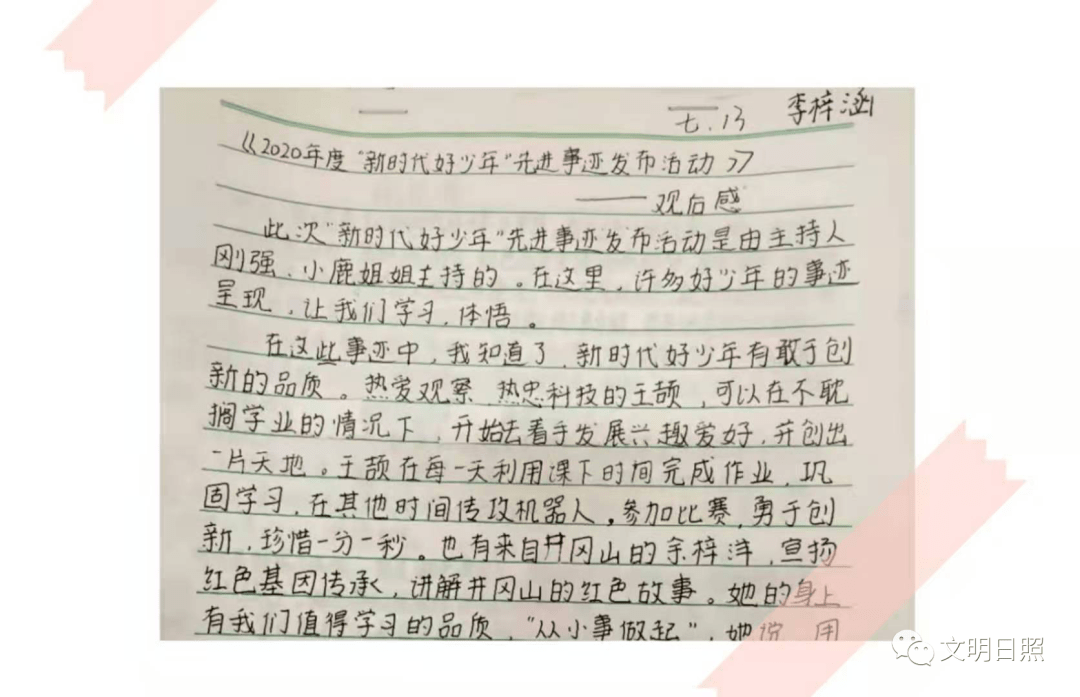 七.13 李梓涵
《2020年度“新时代好少年”先进事迹发布活动》
——观后感
此次“新时代好少年”先进事迹发布活动是由主持人
刚强、小鹿姐姐主持的。在这里,许多好少年的事迹
呈现,让我们学习,体悟。
在这些事迹中,我知道了,新时代好少年有敢于创
新的品质。热爱观察、热忠科技的王颉,可以在不耽
搁学业的情况下,开始去看手发展兴趣爱好,并创出
一片天地。王颉在每一天利用课下时间完成作业,巩
固学习,在其他时间传攻机器人。参加比赛,勇于创
新,珍惜一分一秒。也有来自井冈山的余梓洋,宣扬
红色基因传承,讲解井冈山的红色故事。她的身上
有我们值得学习的品质,“从小事做起”,她说,用
文明日照